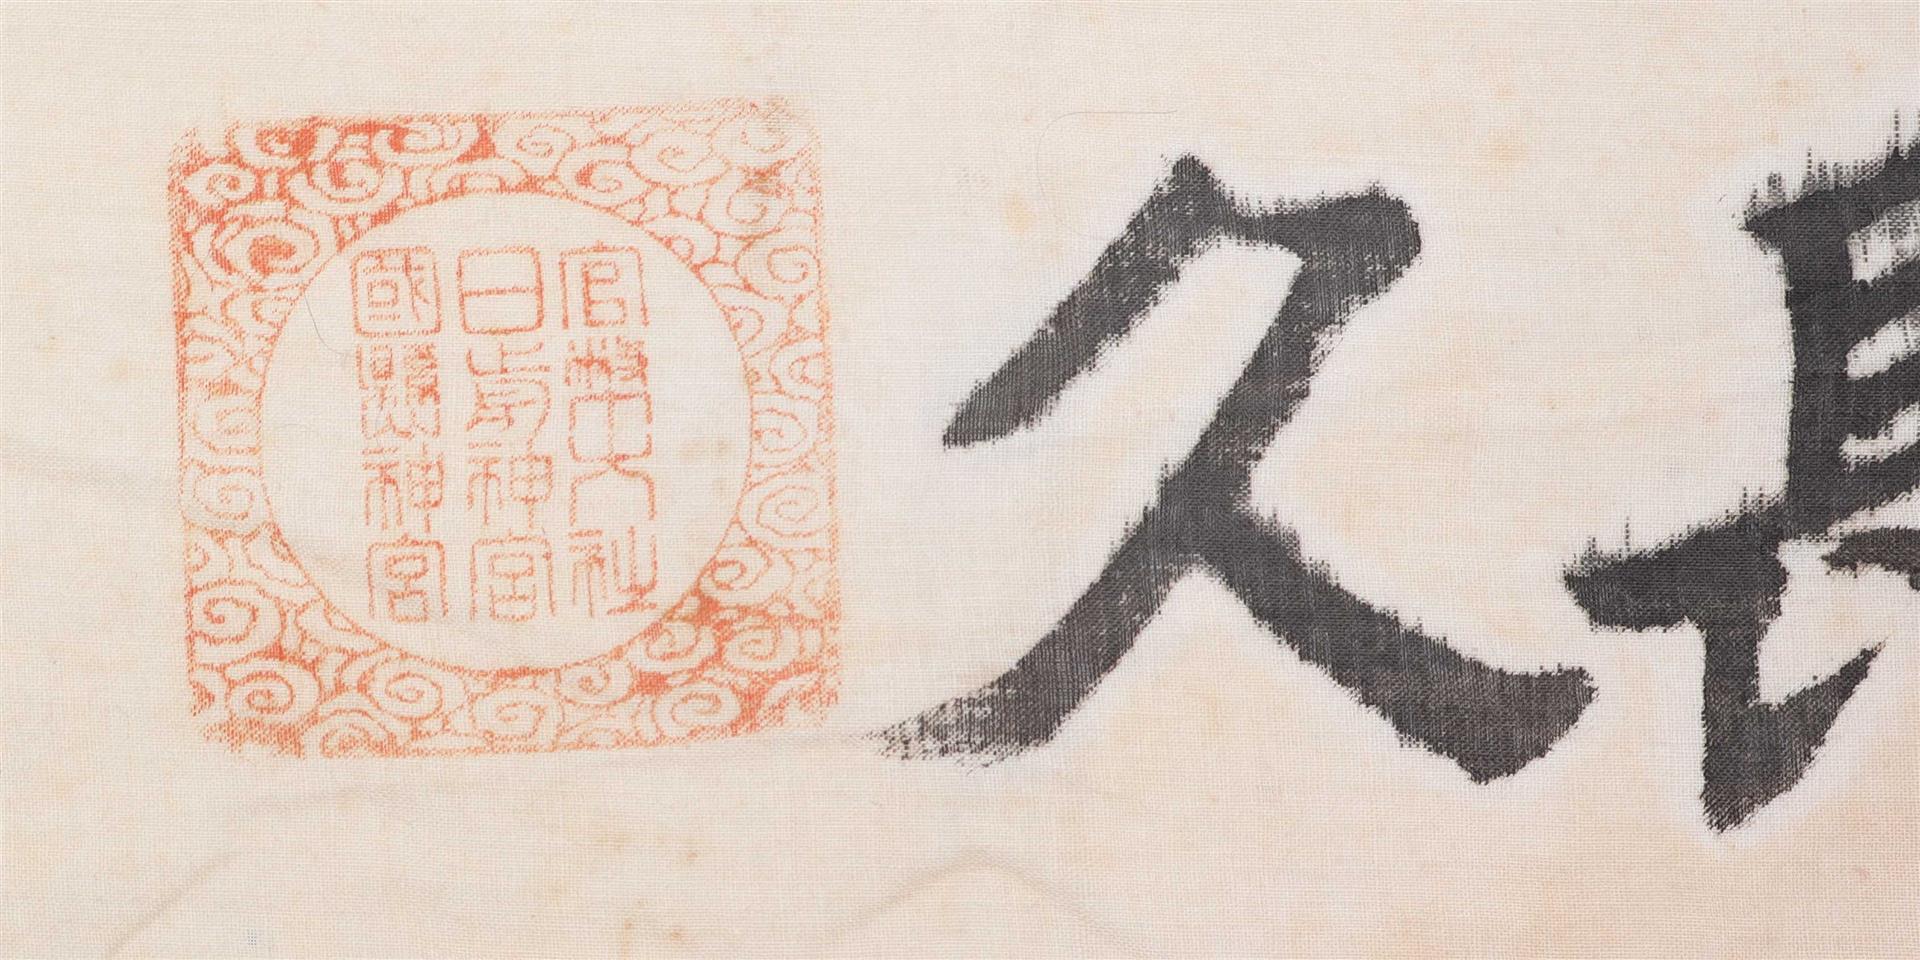 長久
官幣大社
日前神宮
國懸神宮